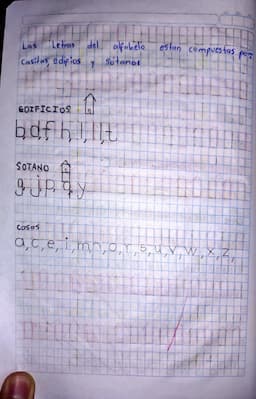 Las letras del alfabelo estan compuestas por:
Casitas, edificios y Sotanos
EDIFICIOS
b,d,f,h,l,ll,t
SOTANO
g,j,p,q,y
COSAS
a,c,e,i,m,n,o,r,s,u,v,w,x,z,